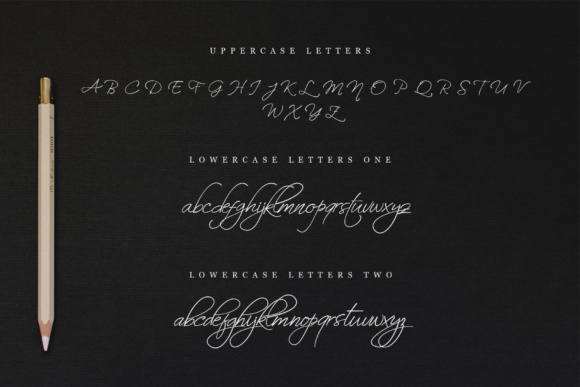 UPPERCASE LETTERS
A B C D E F G H I J K L M N O P Q R S T U V
W X Y Z
LOWERCASE LETTERS ONE
abcdefghijklmnopqrstuvwxyz
LOWERCASE LETTERS TWO
abcdefghijklmnopqrstuvwxyz